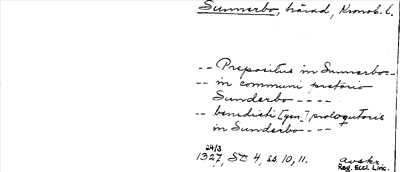 Sunnerbo, härad, Kronob. l.
-- Prepositus in Sunnerbo --
-- in communi pretorio
Sunderbo ----
-- benedicti [gen.] proloqutoris
in Sunderbo ---
24/3
1327, SD 4, ss. 10, 11. avskr.
Reg. Eccl. Linc.